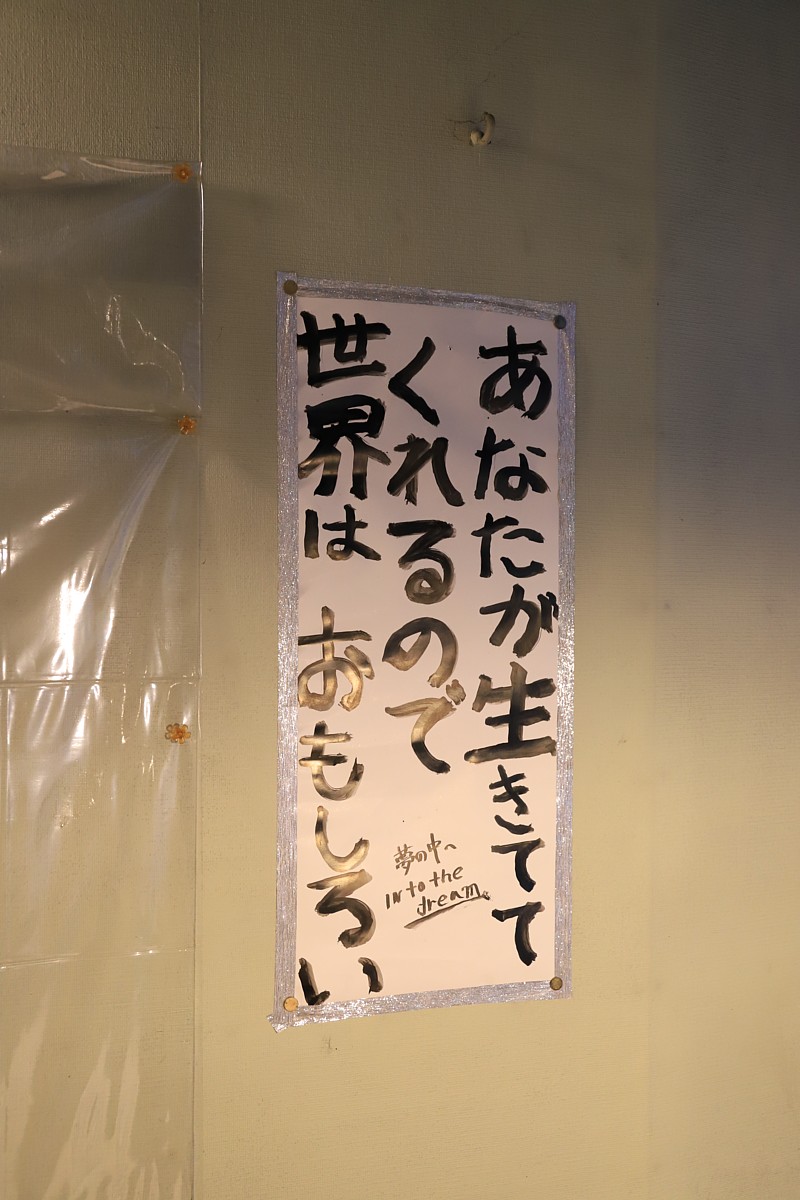 あなたが生きてて
くれるので
世界は おもしろい
夢の中へ
Into the
dream.